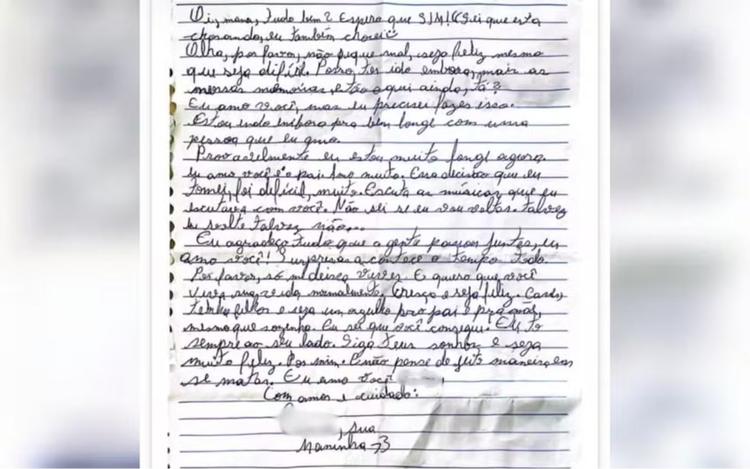 Oi, mana, tudo bem? Espero que SIM! Sei que esta
chorando, eu também chorei
Olha, por favor, não fique mal, seja feliz mesmo
que seja dificil. Posso ter ido embora, mais as
nossas memorias estão aqui ainda, tá?
Eu amo você, mas eu precisei fazer isso.
Estou indo embora pra bem longe com uma
pessoa que eu amo.
Provavelmente eu estou muito longe agora.
Eu amo você e o pai muito. Essa decisão que eu
tomei, foi dificil, muito. Escuta as músicas que eu
escutava com você. Não sei se eu vou voltar. Talvez
eu volte talvez não...
Eu agradeço tudo que a gente passou juntas, eu
amo você! Surpresas acontece o tempo todo.
Por favor, só me deixa viver. E quero que você
viva sua vida normalmente. Cresça e seja feliz. Case,
tenha filhos e seja um orgulho pro pai e pra mãe,
mesmo que sozinha. Eu sei que você consegue. Eu to
sempre ao seu lado. Siga teus sonhos, e seja
muito feliz. Por mim. E não pense de jeito maneira em
se matar. Eu amo você
Com amor e cuidado:
, sua
Maninha <3